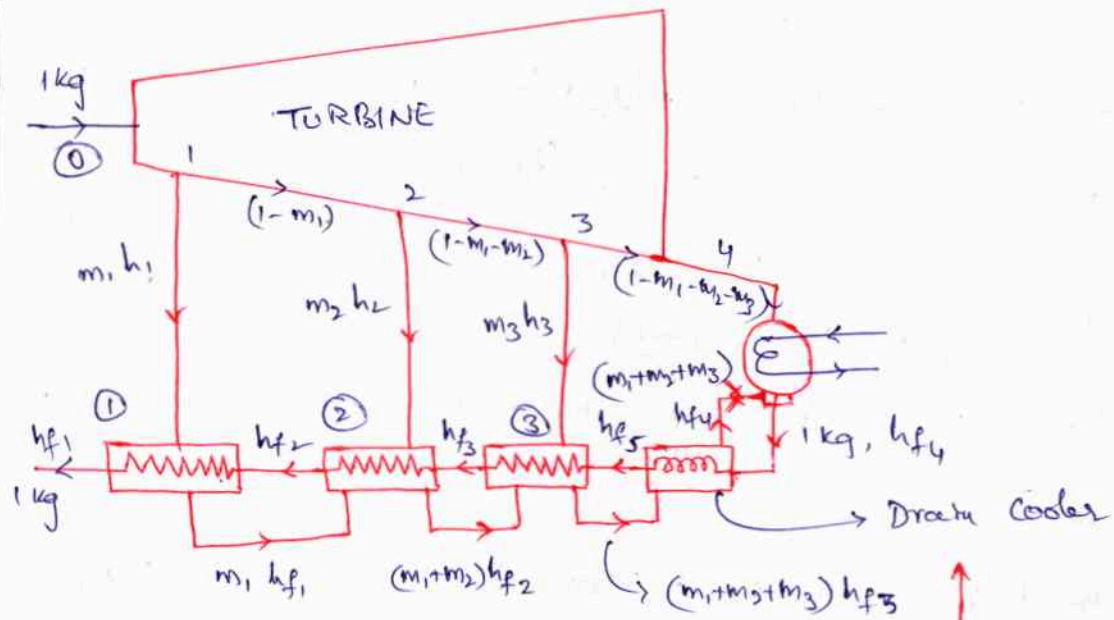 1kg
TURBINE
0
1
(1-m₁)
2
(1-m₁-m₂)
3
4
(1-m₁-m₂-m₃)
m₁h₁
m₂h₂
m₃h₃
(m₁+m₂+m₃)
1
2
3
hf4
hf1
hf2
hf3
hf5
1 kg, hf4
1 kg
Drain Cooler
m₁ hf1
(m₁+m₂)hf2
(m₁+m₂+m₃)hf3